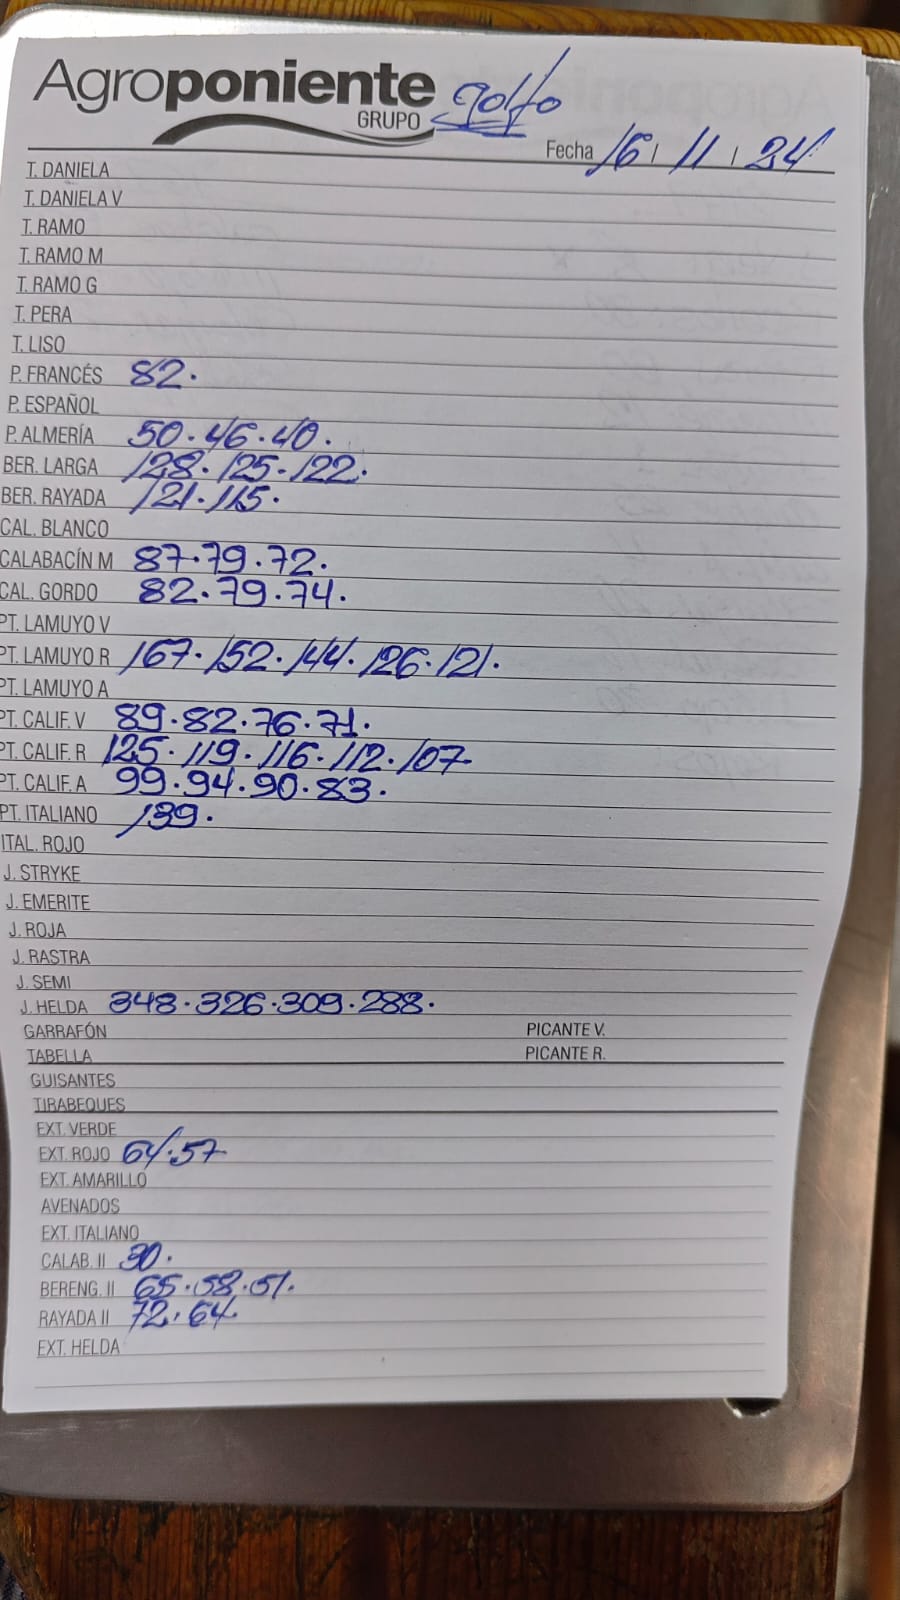 Agroponiente
GRUPO
golfo
Fecha 16 / 11 / 24
T. DANIELA
T. DANIELA V
T. RAMO
T. RAMO M
T. RAMO G
T. PERA
T. LISO
P. FRANCÉS 82.
P. ESPAÑOL
P. ALMERÍA 50. 46. 40.
BER. LARGA 128. 125. 122.
BER. RAYADA 121. 115.
CAL. BLANCO
CALABACÍN M 87. 79. 72.
CAL. GORDO 82. 79. 74.
PT. LAMUYO V
PT. LAMUYO R 167. 152. 144. 126. 121.
PT. LAMUYO A
PT. CALIF. V 89. 82. 76. 71.
PT. CALIF. R 125. 119. 116. 112. 107
PT. CALIF. A 99. 94. 90. 83.
PT. ITALIANO 139.
ITAL. ROJO
J. STRYKE
J. EMERITE
J. ROJA
J. RASTRA
J. SEMI
J. HELDA 348. 326. 309. 288.
GARRAFÓN PICANTE V.
TABELLA PICANTE R.
GUISANTES
TIRABEQUES
EXT. VERDE
EXT. ROJO 64. 57
EXT. AMARILLO
AVENADOS
EXT. ITALIANO
CALAB. II 30.
BERENG. II 65. 58. 51.
RAYADA II 72. 64.
EXT. HELDA